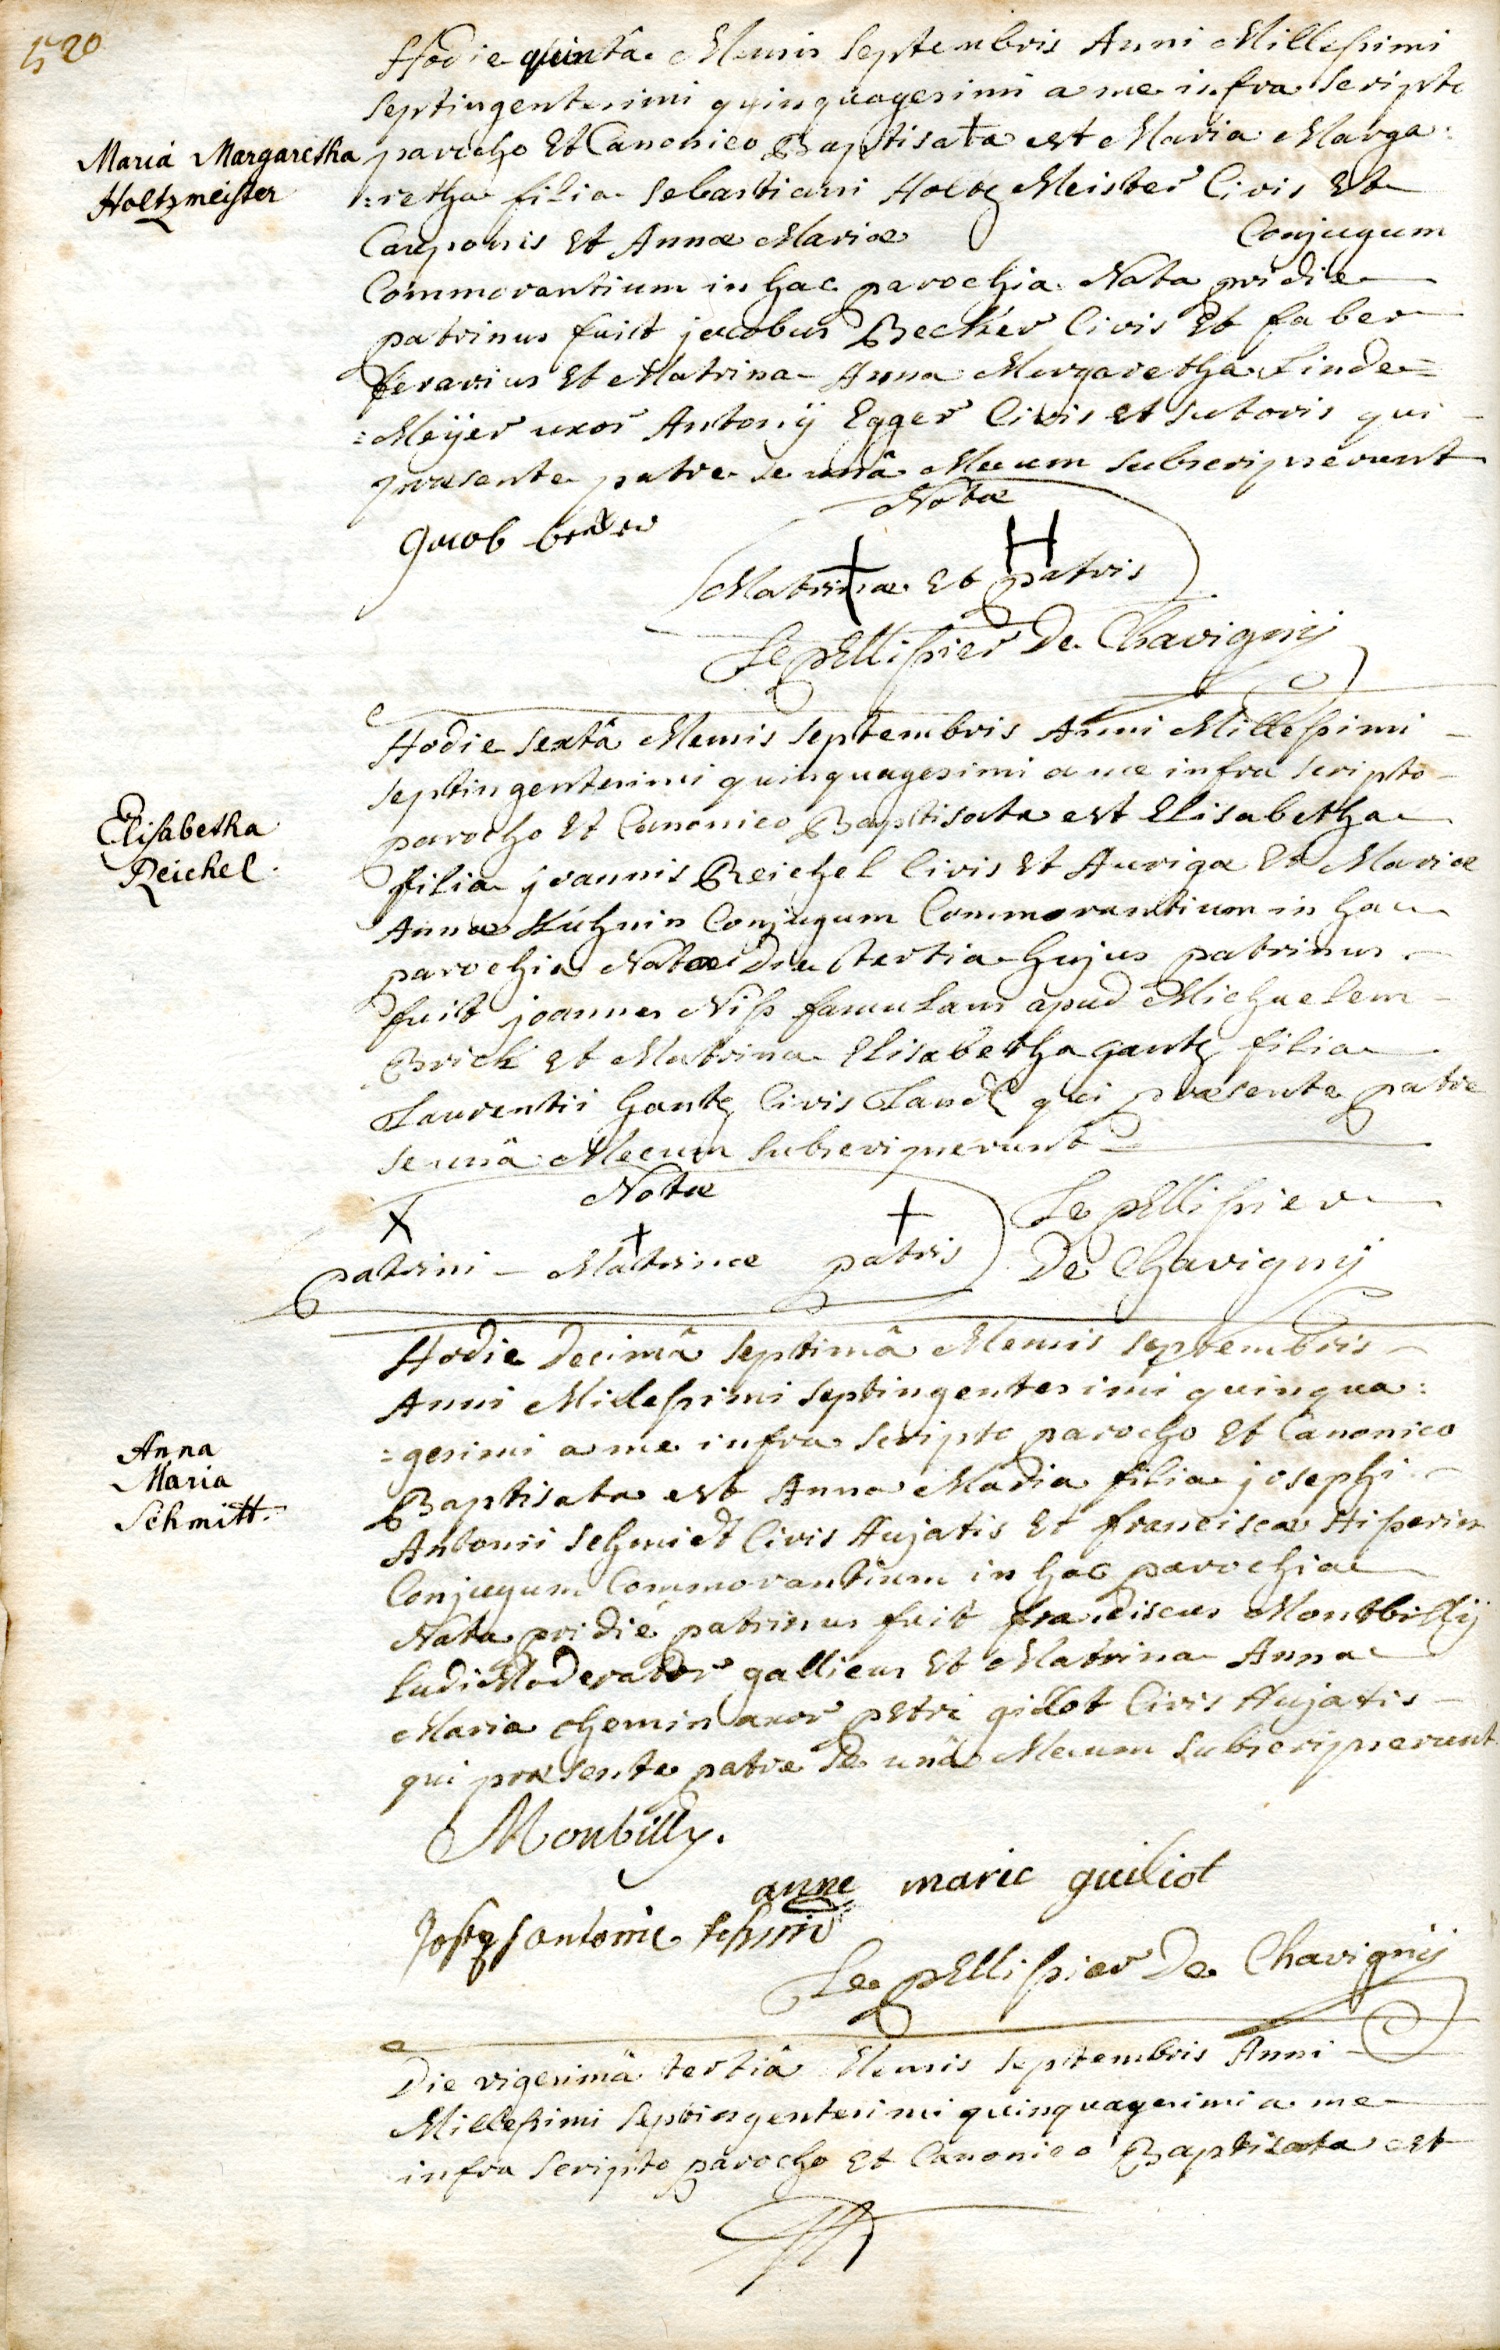 520
Hodie quinta Mensis Septembris Anni Millessimi
Septingentesimi quinquagesimi a me infra scripto
Maria Margaretha
Holtzmeister
parocho Et Canonico Baptisata est Maria Marga:
:retha filia Sebastiani Holtz Meister Civis Et
Cauponis Et Annæ Mariæ Conjugum
Commorantium in hac parochia Nata pridie
patrinus fuit jacobus Becker Civis Et faber
ferarius Et Matrina Anna Margaretha Linde=
=Meÿer uxor Antonÿ Egger Civis et Sutoris qui
præsente patre se unâ Mecum subscripserunt
Jacob
Notæ
Matrinæ Et patris
Le pEllissier De Chavignÿ
Hodie sextâ Mensis Septembris Anni Millessimi
Septingentesimi quinquagesimi a me infra scripto
Elisabetha
Reichel.
parocho Et Canonico Baptisata est Elisabetha
filia joannis Reichel Civis Et Aurigæ Et Mariæ
Annæ Kúhnin Conjugum Commorantium in hac
parochia Nata Die tertia hujus patrinus
fuit joannes Niss famulans apud Michaelem
Brick Et Matrina Elisabetha gantz filia
Laurentii Gantz Civis Land: qui præsente patre
se unâ Mecum subscripserunt
Notæ
patrini Matrinæ patris
Le pEllissier
De Chavignÿ
Hodie Decimâ Septimâ Mensis Septembris
Anni Millessimi Septingentesimi quinqua:
=gesimi a me infra scripto parocho Et Canonico
Anna
Maria
Schmitt.
Baptisata est Anna Maria filia josephi
Antonii Schmidt Civis Hujatis Et franciscæ
Conjugum Commorantium in hac parochia
Nata pridie patrinus fuit franciscus Montbillÿ
LudiModerator gallicus Et Matrina Anna
Maria chemin uxor pEtri gillot Civis Hujatis
qui præsente patre se unâ Mecum subscripserunt
Monbilly.
anne marie guiliot
Joseph antonie schmid
Le pEllissier De Chavignÿ
Die vigesimâ tertiâ Mensis Septembris Anni
Millessimi Septingentesimi quinquagesimi a me
infra scripto parocho Et Canonico Baptisata est